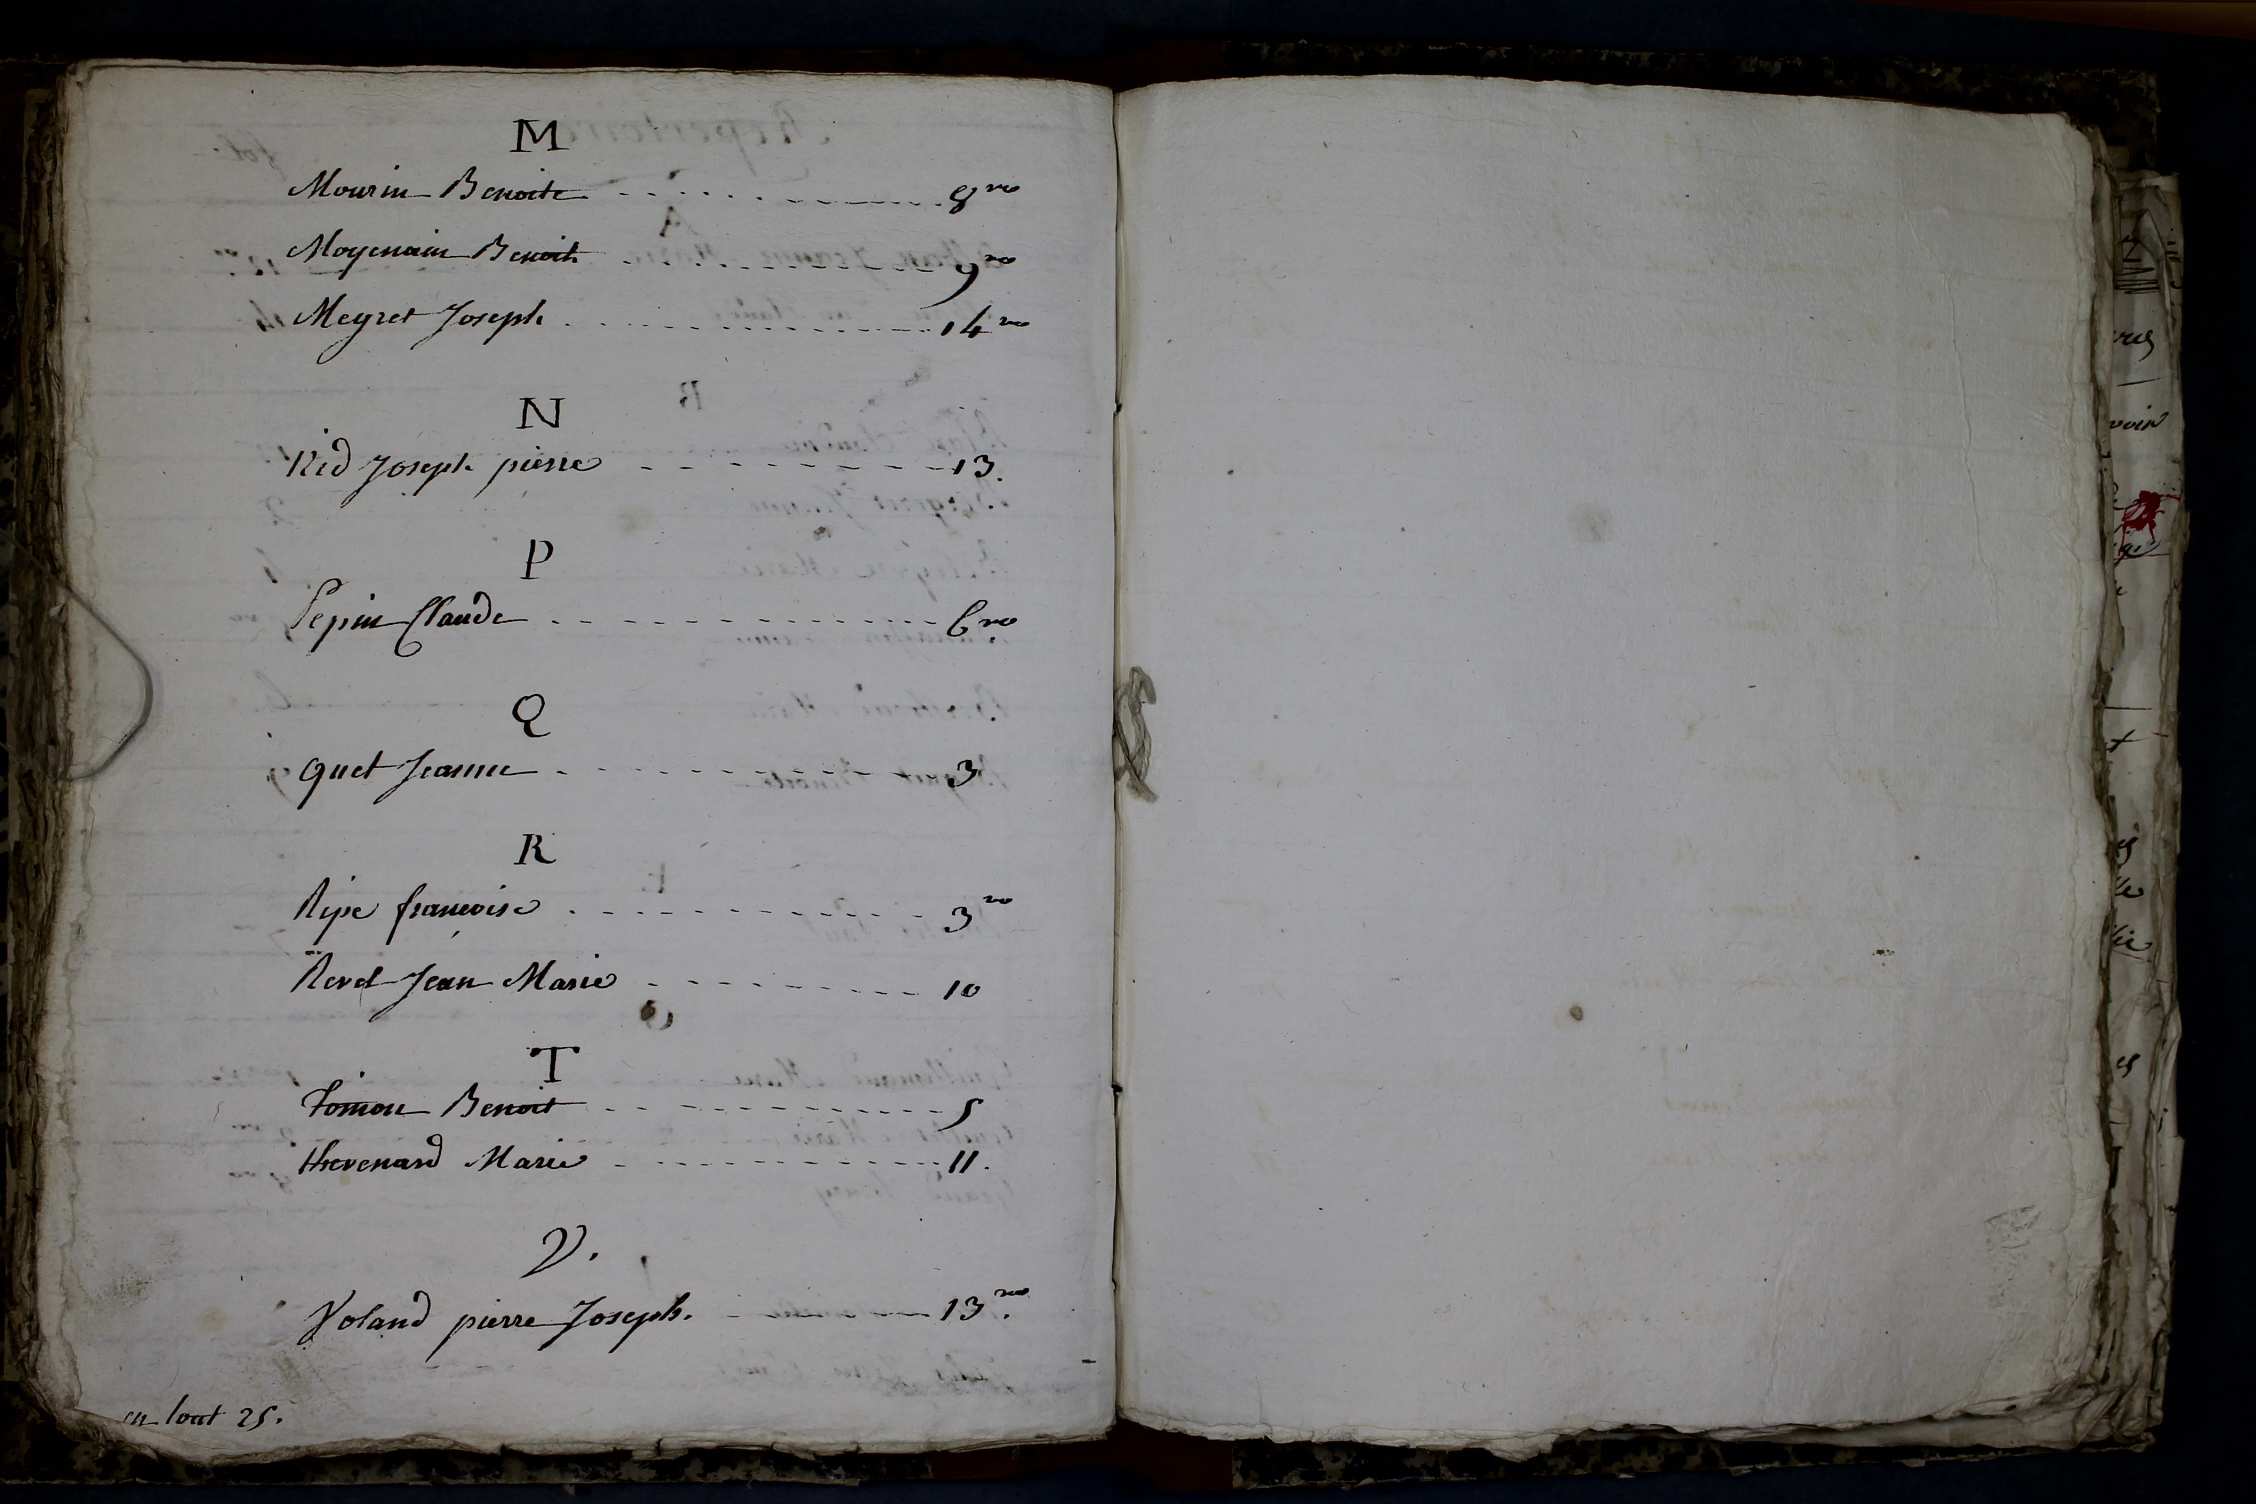 M
Mourin Benoite 8 ro
Moyenain Benoit 9 ro
Meyret Joseph 14 ro
N
Nid Joseph pierre 13.
P
Pepin Claude 6 ro
Q
quet Jeanne 3
R
Ripe francoise 3 ro
Revel Jean Marie 10
T
Toinon Benoit 5
thevenard Marie 11.
V.
Voland pierre Joseph. 13 ro.
en tout 25.